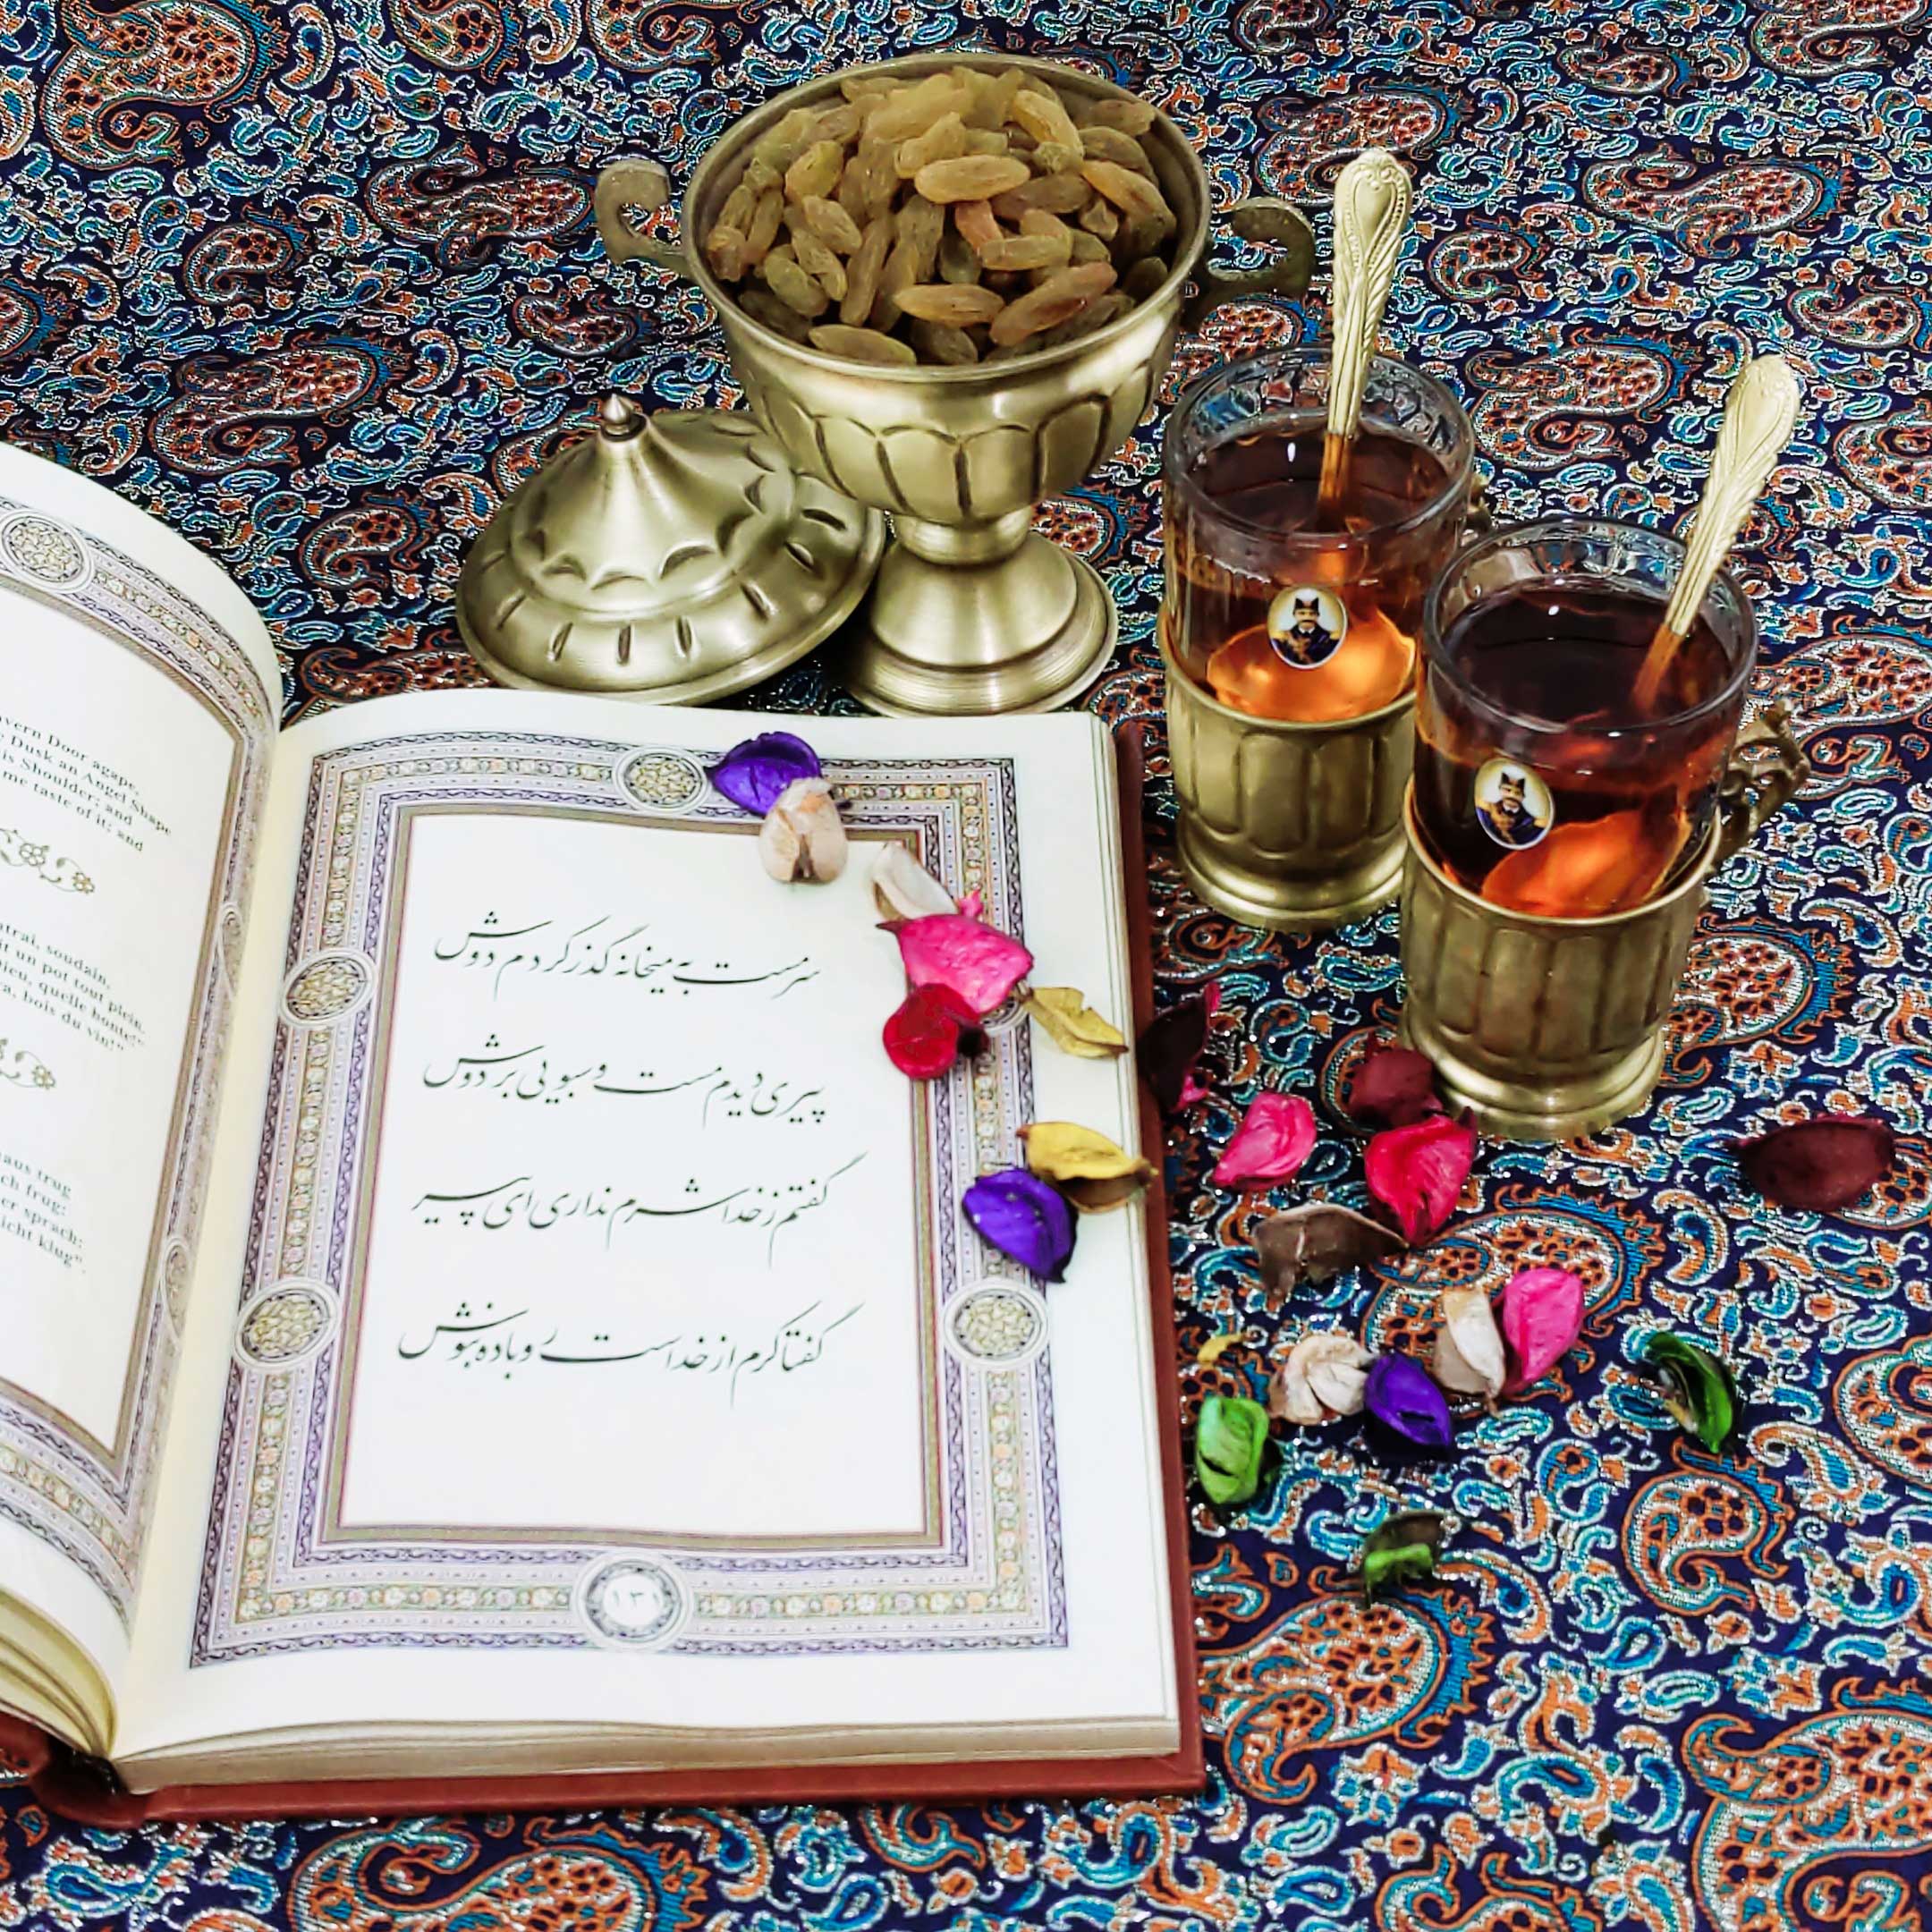 سرمست به میخانه گذر کردم دوش
پیری دیدم مست و سبویی بر دوش
گفتم ز خدا شرم نداری ای پیر
گفتا کرم از خداست رو باده بنوش
۱۳۱
vern Door agape,
Dusk an Angel Shape
is Shoulder; and
me taste of it; and
trai, soudain,
it un pot tout plein.
ieu, quelle honte!"
a, bois du vin!"
aus trug
ch frug:
er sprach:
icht klug".